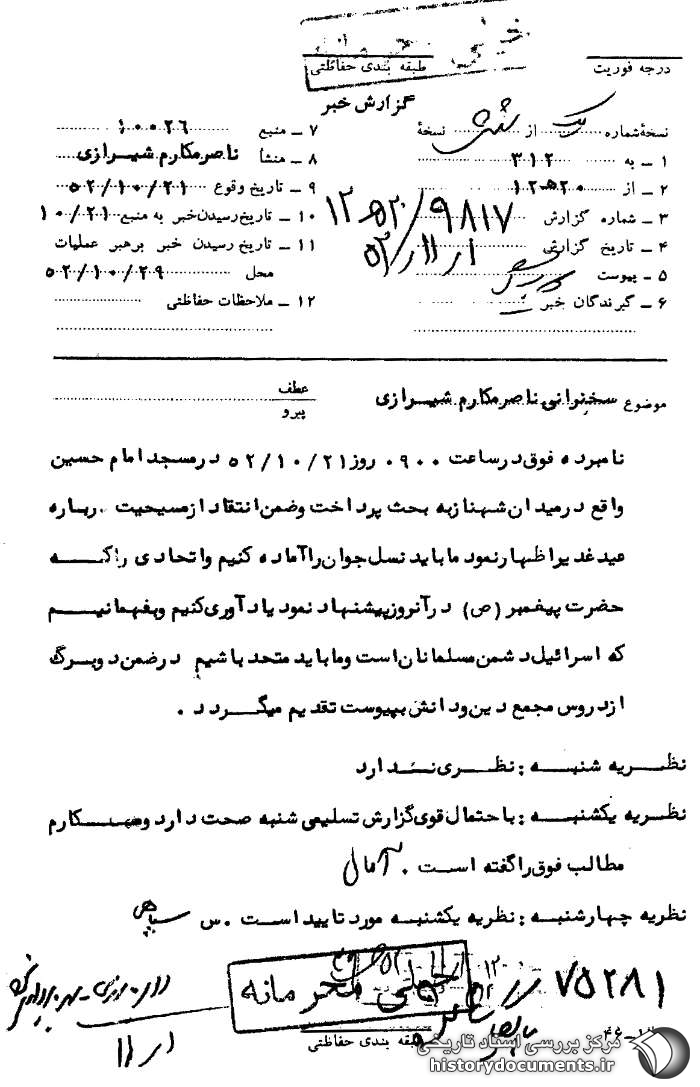 درجه فوریت
طبقه بندی حفاظتی
گزارش خبر
نسخهٔ شماره یک از شش نسخهٔ
۱ ـ به ۳۱۲
۲ ـ از ۱۲ ه‍ ۲۰
۳ ـ شماره گزارش ۹۸۱۷/ ۱۲ ه‍ ۲۰
۴ ـ تاریخ گزارش ۵۲/۱۱/۱
۵ ـ پیوست
۶ ـ گیرندگان خبر
۷ ـ منبع ۱۰۰۲۶
۸ ـ منشأ ناصرمکارم شیرازی
۹ ـ تاریخ وقوع ۵۲/۱۰/۲۱
۱۰ ـ تاریخ رسیدن خبر به منبع ۱۰/۲۱
۱۱ ـ تاریخ رسیدن خبر برهبر عملیات
محل ۵۲/۱۰/۲۹
۱۲ ـ ملاحظات حفاظتی
موضوع سخنرانی ناصرمکارم شیرازی
عطف
پیرو
نامبرده فوق درساعت ۰۹۰۰ روز ۵۲/۱۰/۲۱ درمسجد امام حسین
واقع درمیدان شهناز به بحث پرداخت وضمن انتقاد ازمسیحیت درباره
عید غدیر اظهار نمود ما باید نسل جوان را آماده کنیم و اتحادی را که
حضرت پیغمبر (ص) در آنروز پیشنهاد نمود یادآوری کنیم و بفهمانیم
که اسرائیل دشمن مسلمانان است وما باید متحد باشیم درضمن دوبرگ
ازدروس مجمع دین ودانش بپیوست تقدیم میگردد .
نظریه شنبه : نظری ندارد
نظریه یکشنبه : با احتمال قوی گزارش تسلیمی شنبه صحت دارد ومکارم
مطالب فوق را گفته است . آمال
نظریه چهارشنبه : نظریه یکشنبه مورد تایید است . س سپاهی
خیلی محرمانه
۷۵۲۸۱
۱۱/۱
طبقه بندی حفاظتی
مرکز بررسی اسناد تاریخی
historydocuments.ir